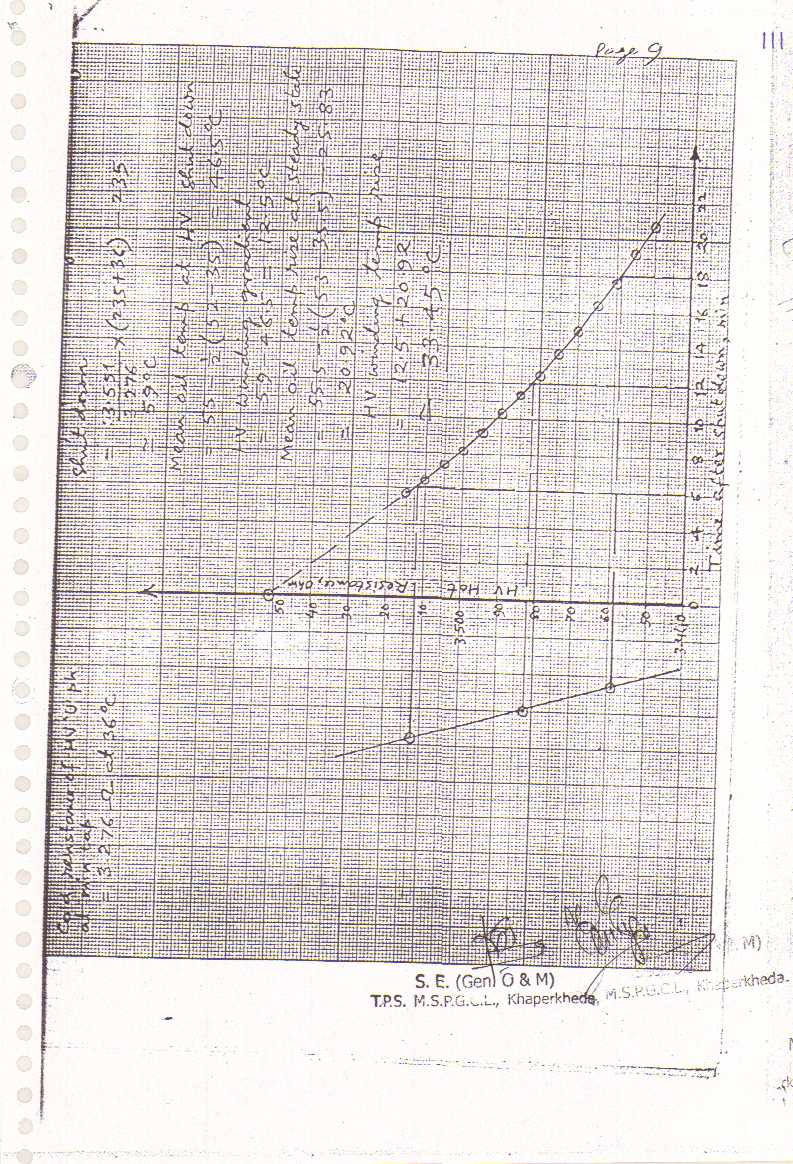 Page 9
111
Cold resistance of HV 'U' ph
at min tap
= 3.276 Ω at 36°C
Shut down
= 3.551/3.276 x (235+36) - 235
= 59°C
Mean oil temp at HV shut down
= 55 - 1/2 (52-35) = 46.5°C
HV winding gradient
= 59 - 46.5 = 12.5°C
Mean oil temp rise at steady state
= 55.5 - 1/2 (53-35.5) - 25.83
= 20.92°C
HV winding temp rise
= 12.5 + 20.92
= 33.45°C
HV Hot Resistance, ohm
50
40
30
20
10
3.500
90
80
70
60
50
3.440
0 2 4 6 8 10 12 14 16 18 20 22
Time after shut down, min
S. E. (Gen) O & M)
T.P.S. M.S.P.G.C.L., Khaperkheda
M)
M.S.P.G.C.L., Khaperkheda.